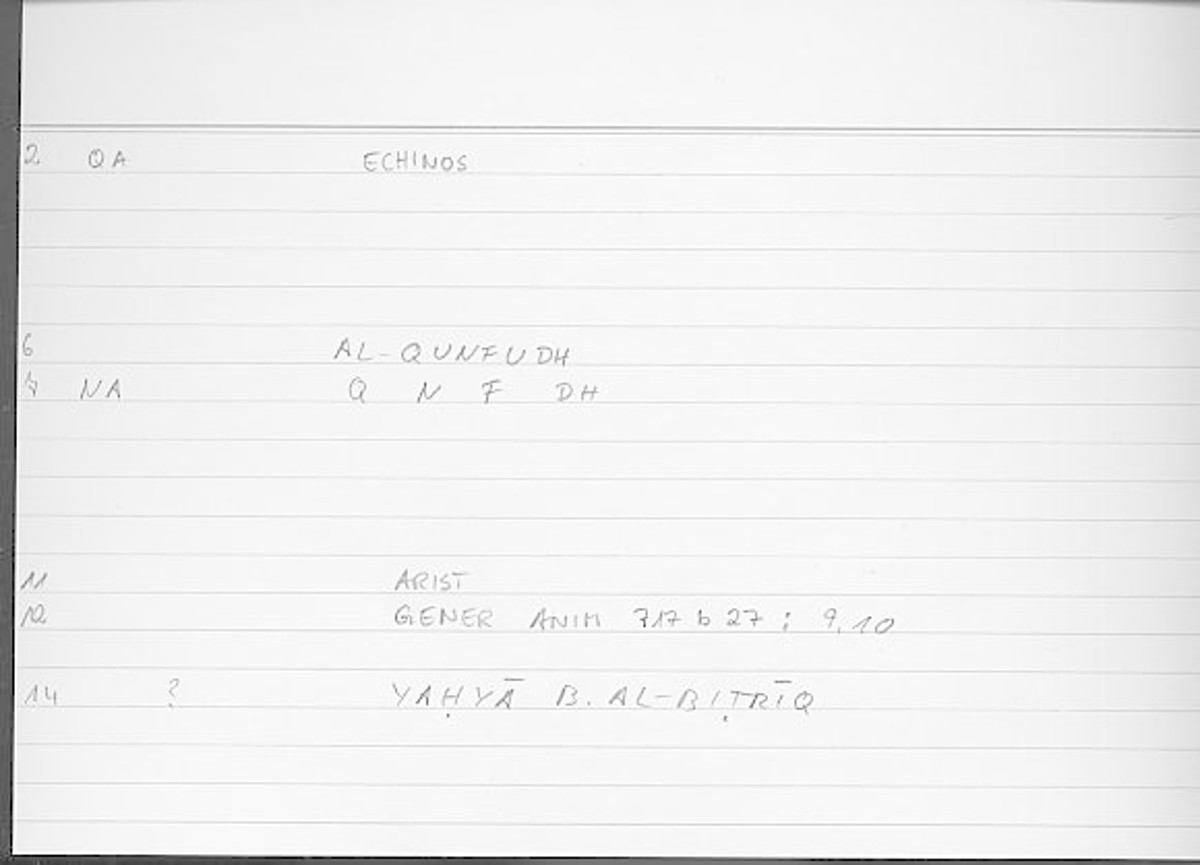 2 QA ECHINOS
6 AL-QUNFUDH
7 NA Q N F DH
11 ARIST
12 GENER ANIM 717 b 27 ; 9,10
14 ? YAḤYĀ B. AL-BIṬRĪQ